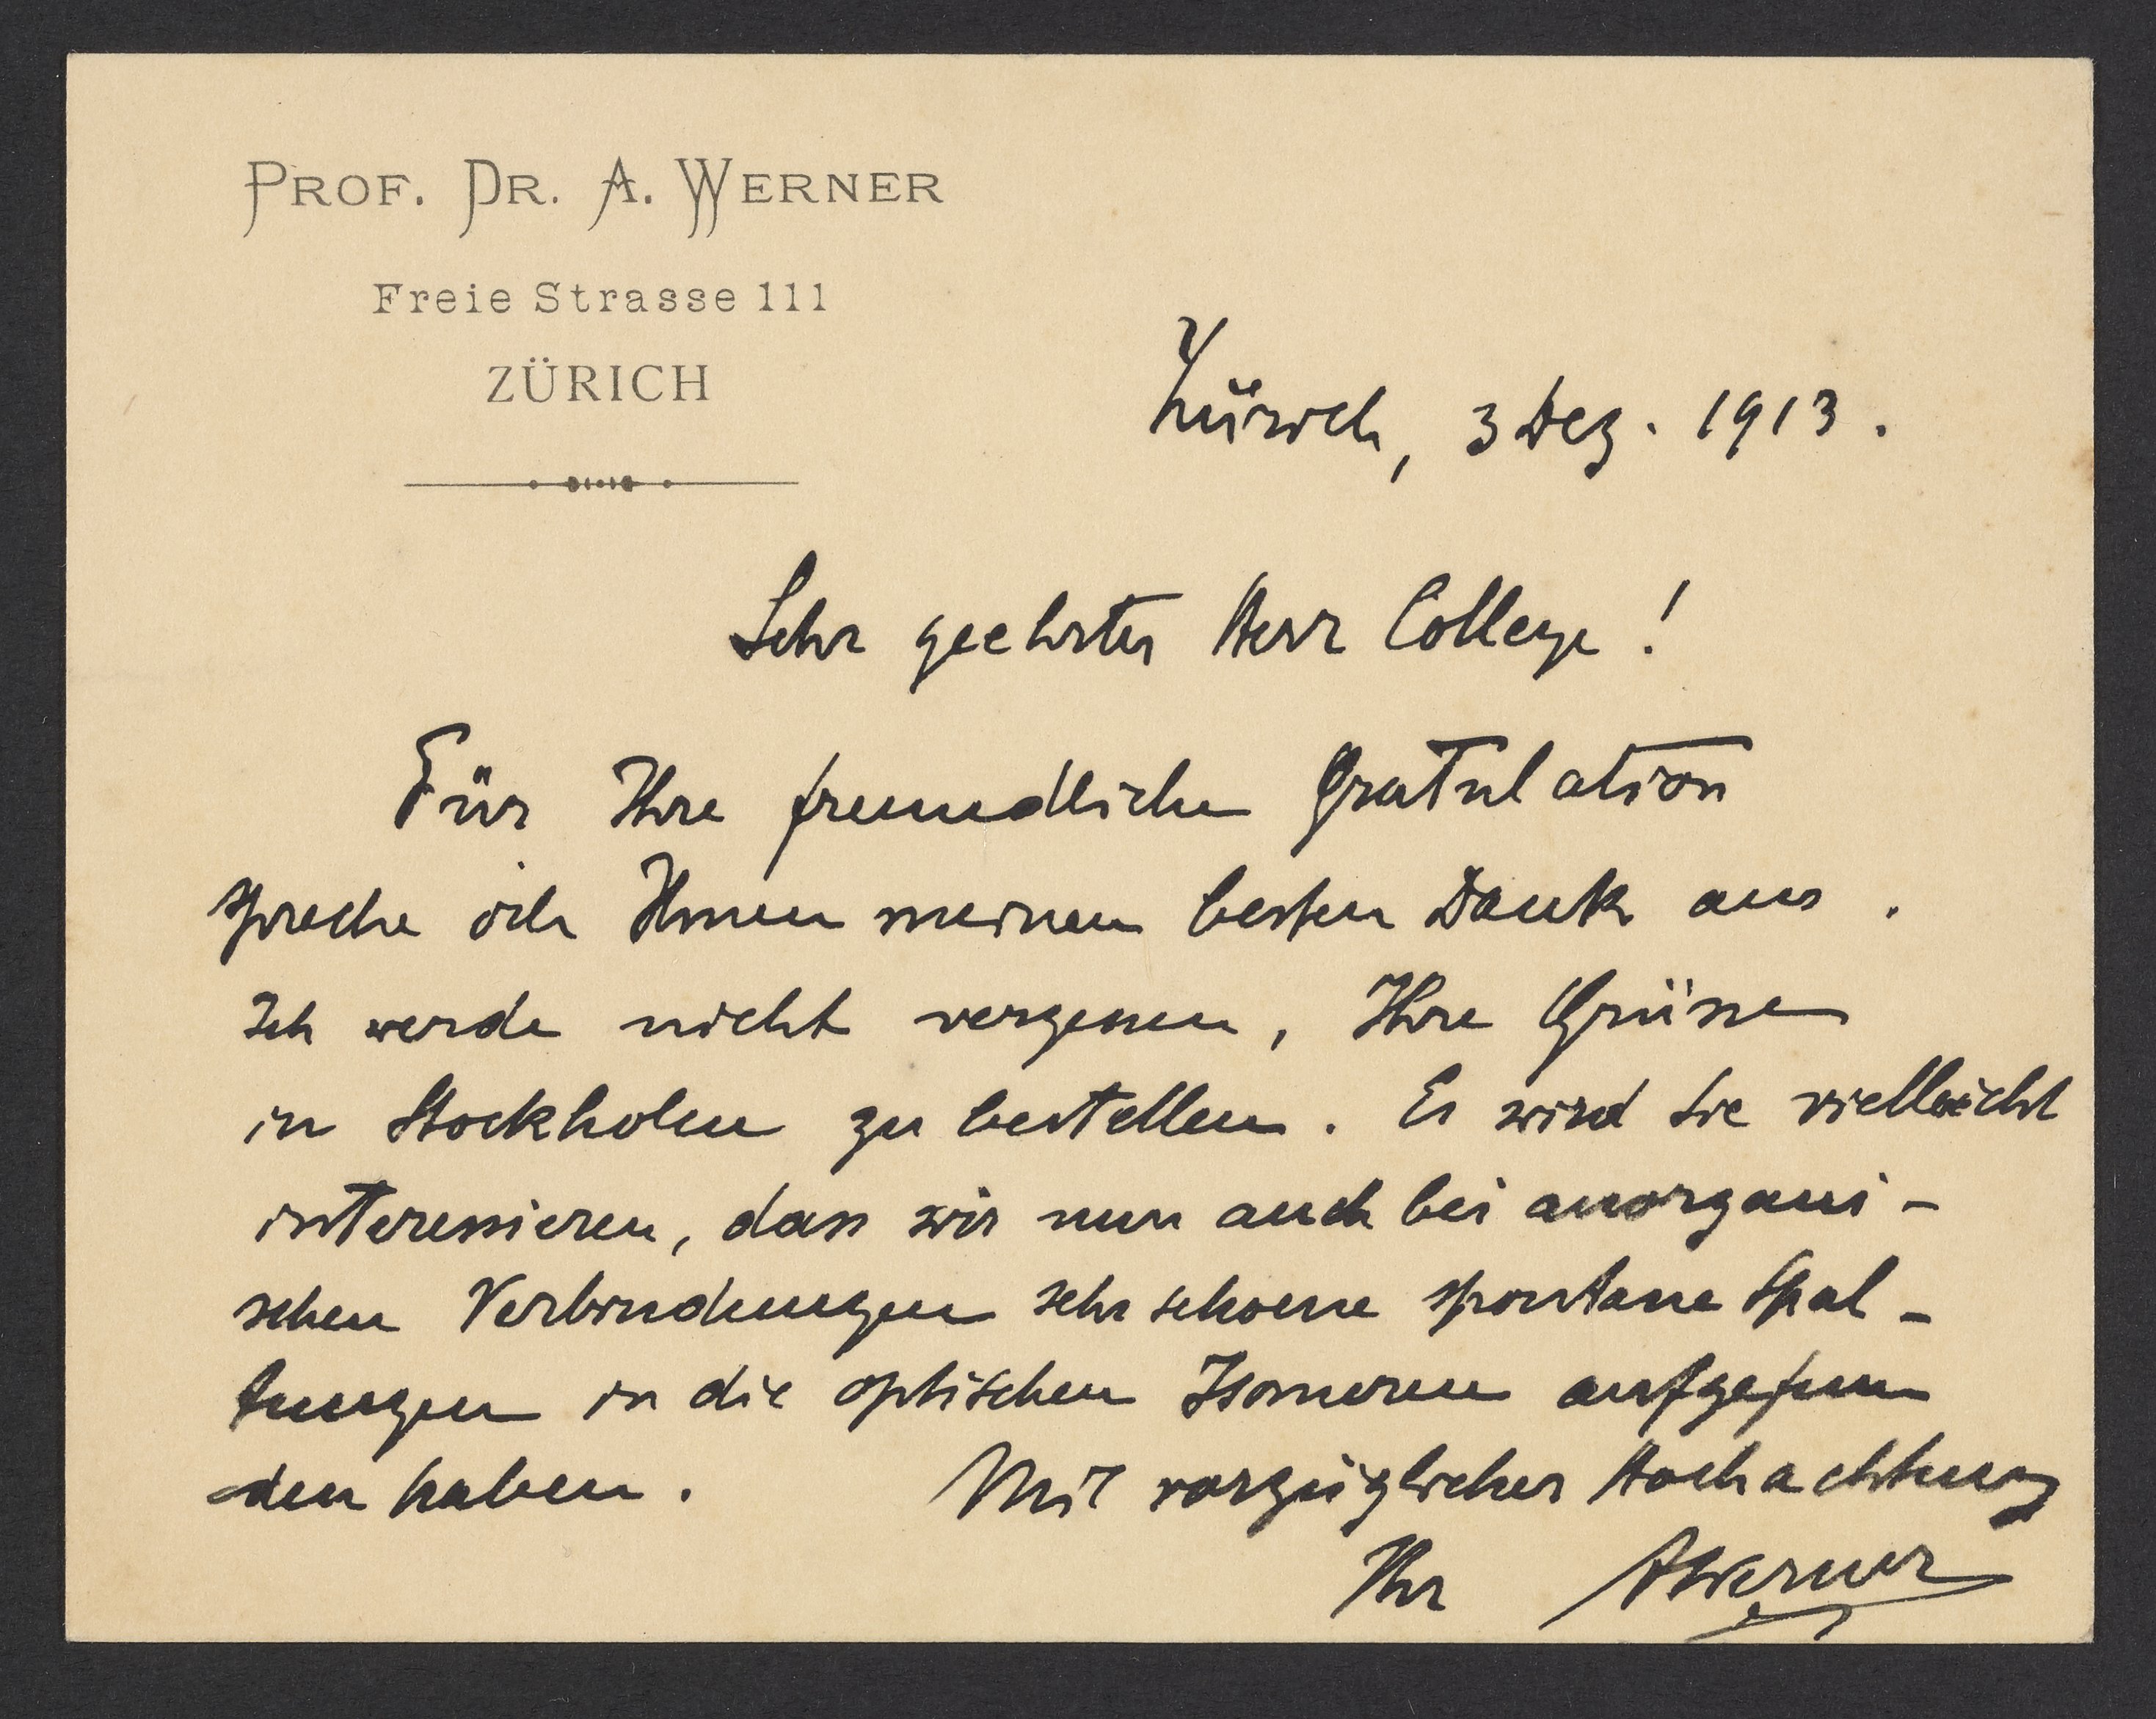 PROF. DR. A. WERNER
Freie Strasse 111
ZÜRICH
Zürich, 3 Dez. 1913.
Sehr geehrter Herr College!
Für Ihre freundliche Gratulation
spreche ich Ihnen meinen besten Dank aus.
Ich werde nicht vergessen, Ihre Grüsse
in Stockholm zu bestellen. Es wird Sie vielleicht
interessieren, dass wir nun auch bei anorgani-
schen Verbindungen sehr schoene spontane Spal-
tungen in die optischen Isomeren aufgefun
den haben. Mit vorzüglicher Hochachtung
Ihr AWerner